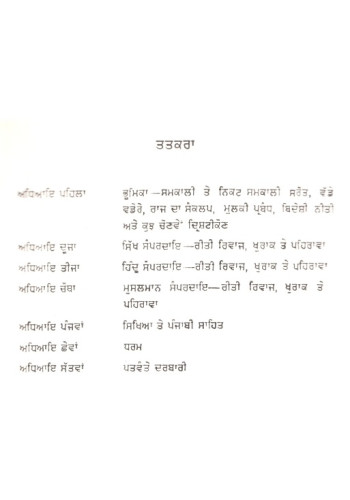 ਤਤਕਰਾ
ਅਧਿਆਇ ਪਹਿਲਾ ਭੂਮਿਕਾ—ਸਮਕਾਲੀ ਤੇ ਨਿਕਟ ਸਮਕਾਲੀ ਸਰੋਤ, ਵੱਡੇ
ਵਡੇਰੇ, ਰਾਜ ਦਾ ਸੰਕਲਪ, ਮੁਲਕੀ ਪ੍ਰਬੰਧ, ਬਿਦੇਸ਼ੀ ਨੀਤੀ
ਅਤੇ ਕੁਝ ਚੋਣਵੇਂ ਦ੍ਰਿਸ਼ਟੀਕੋਣ
ਅਧਿਆਇ ਦੂਜਾ ਸਿੱਖ ਸੰਪਰਦਾਇ—ਰੀਤੀ ਰਿਵਾਜ, ਖੁਰਾਕ ਤੇ ਪਹਿਰਾਵਾ
ਅਧਿਆਇ ਤੀਜਾ ਹਿੰਦੂ ਸੰਪਰਦਾਇ—ਰੀਤੀ ਰਿਵਾਜ, ਖੁਰਾਕ ਤੇ ਪਹਿਰਾਵਾ
ਅਧਿਆਇ ਚੌਥਾ ਮੁਸਲਮਾਨ ਸੰਪਰਦਾਇ—ਰੀਤੀ ਰਿਵਾਜ, ਖੁਰਾਕ ਤੇ
ਪਹਿਰਾਵਾ
ਅਧਿਆਇ ਪੰਜਵਾਂ ਸਿਖਿਆ ਤੇ ਪੰਜਾਬੀ ਸਾਹਿਤ
ਅਧਿਆਇ ਛੇਵਾਂ ਧਰਮ
ਅਧਿਆਇ ਸੱਤਵਾਂ ਪਤਵੰਤੇ ਦਰਬਾਰੀ